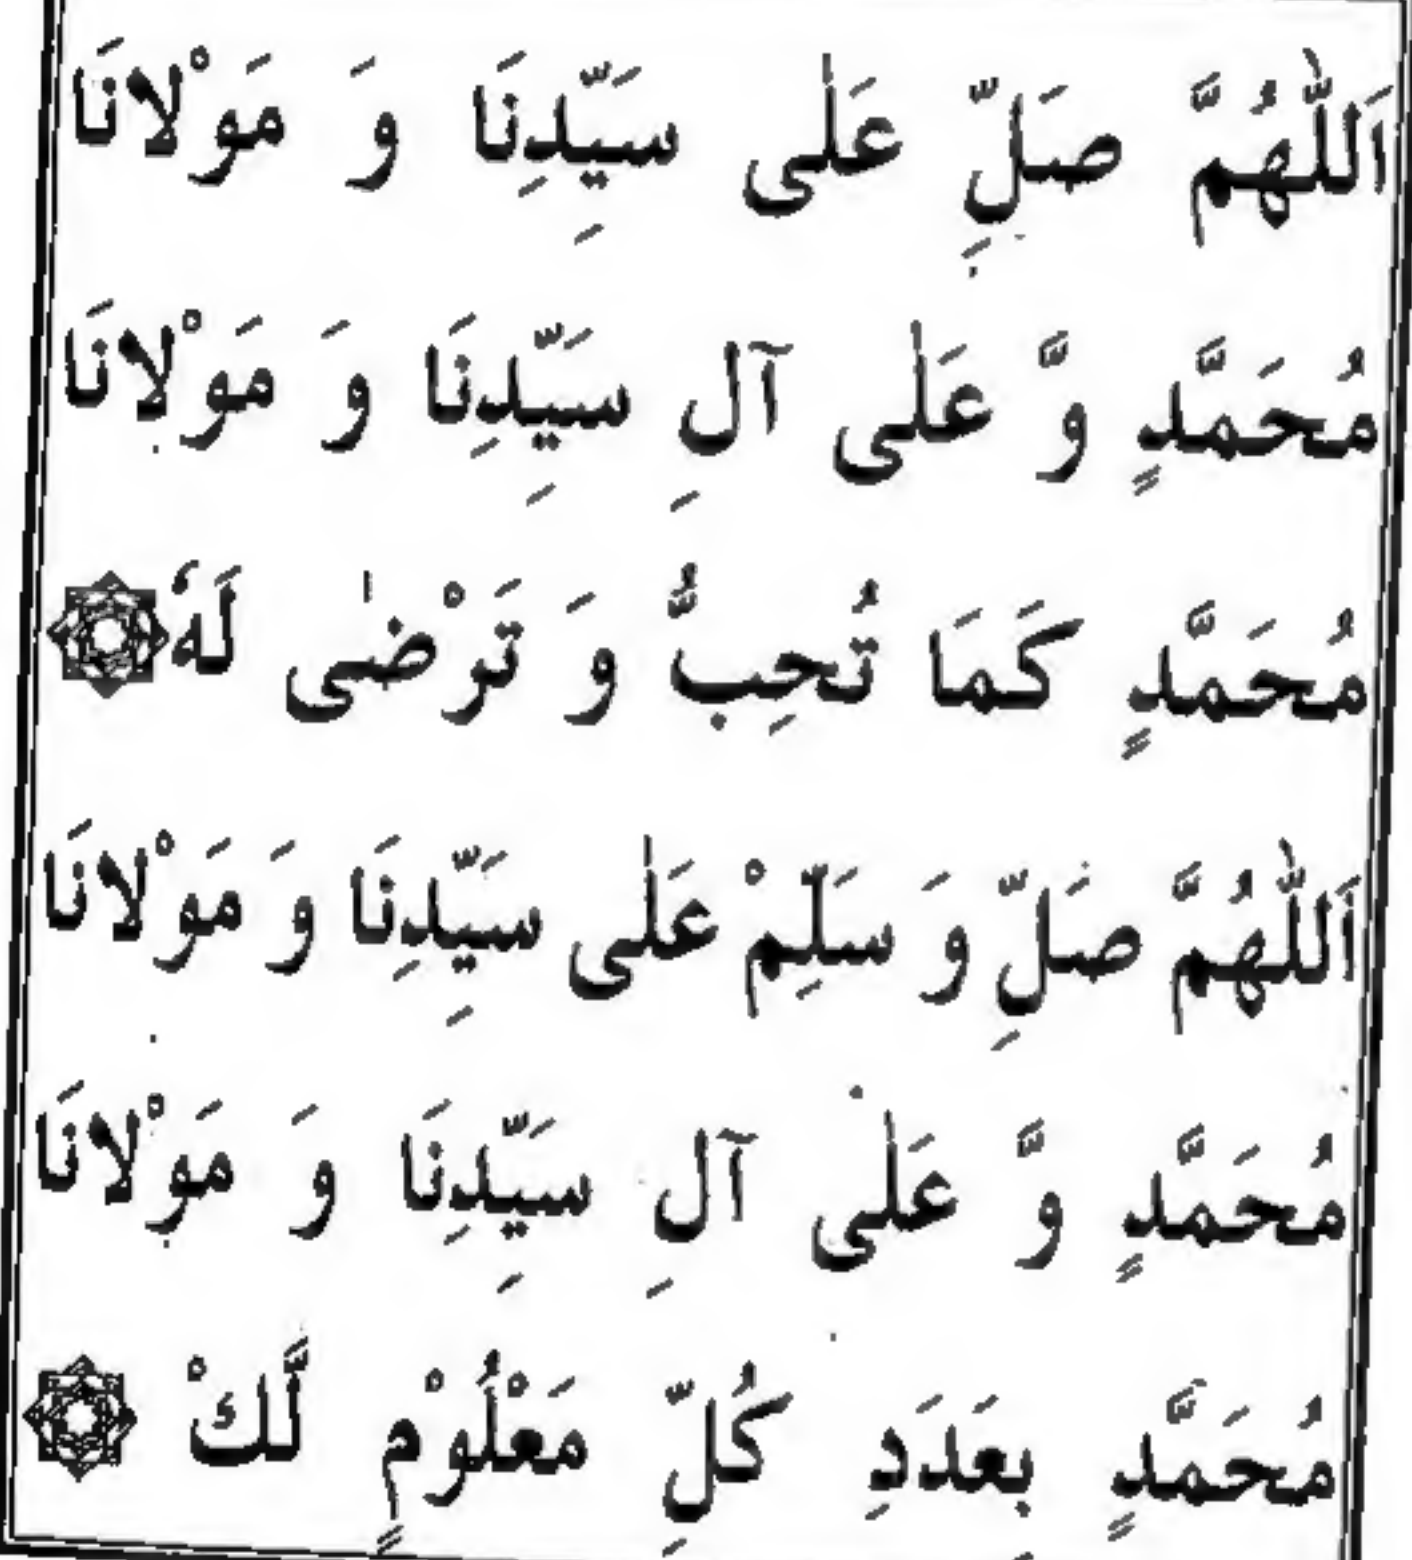 اَللّٰهُمَّ صَلِّ عَلٰى سَيِّدِنَا وَ مَوْلَانَا
مُحَمَّدٍ وَّ عَلٰى آلِ سَيِّدِنَا وَ مَوْلَانَا
مُحَمَّدٍ كَمَا تُحِبُّ وَ تَرْضٰى لَهٗ
اَللّٰهُمَّ صَلِّ وَ سَلِّمْ عَلٰى سَيِّدِنَا وَ مَوْلَانَا
مُحَمَّدٍ وَّ عَلٰى آلِ سَيِّدِنَا وَ مَوْلَانَا
مُحَمَّدٍ بِعَدَدِ كُلِّ مَعْلُوْمٍ لَّكْ